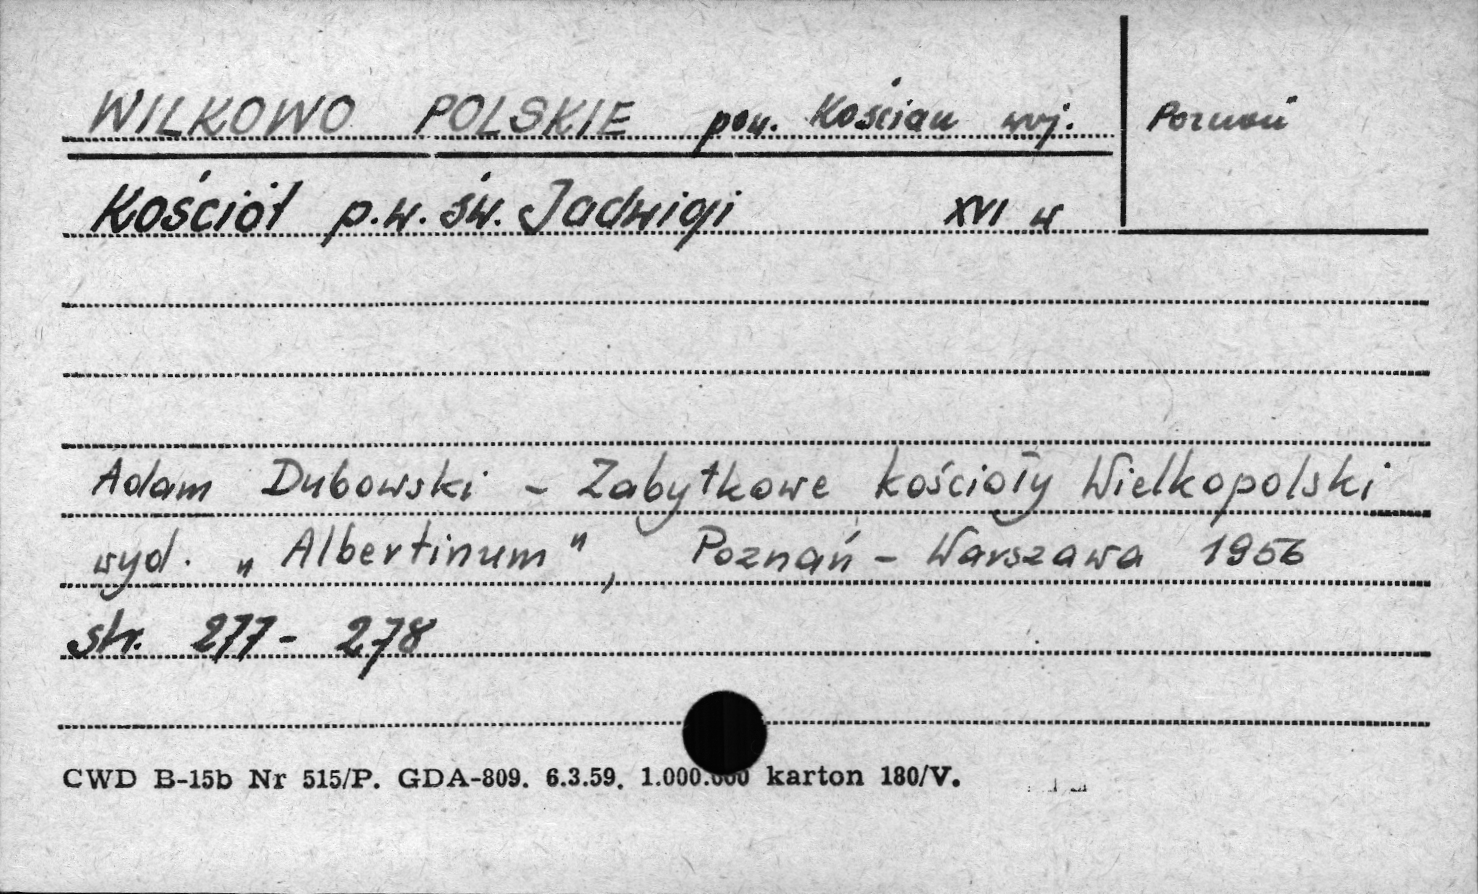 WILKOWO POLSKIE pow. Kościan woj. Poznań
Kościół p.w. św. Jadwigi XVI w
Adam Dubowski - Zabytkowe kościoły Wielkopolski
wyd. „Albertinum", Poznań - Warszawa 1956
str. 277 - 278
CWD B-15b Nr 515/P. GDA-809. 6.3.59. 1.000.000 karton 180/V.